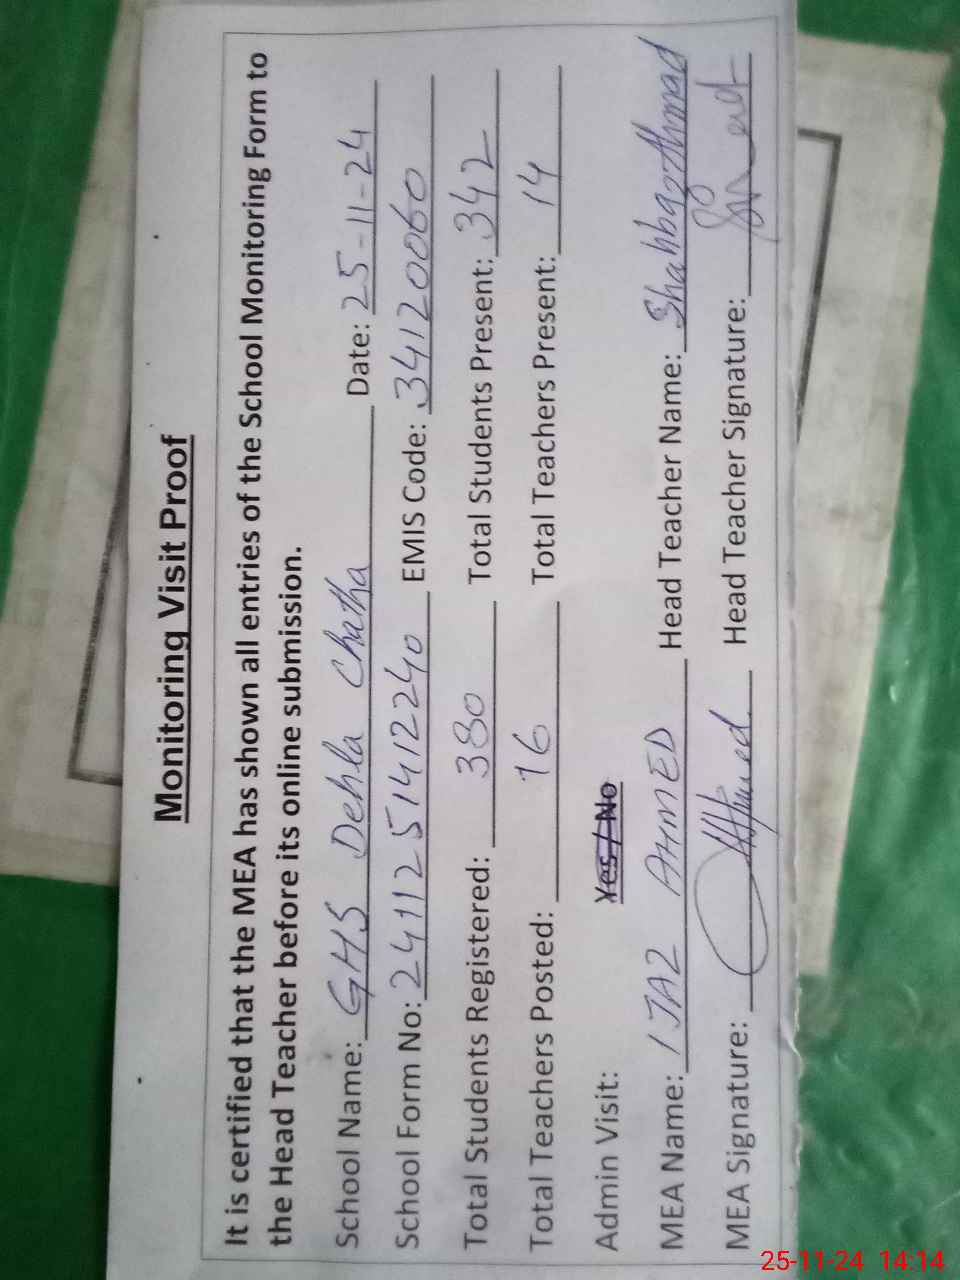 Monitoring Visit Proof
It is certified that the MEA has shown all entries of the School Monitoring Form to
the Head Teacher before its online submission.
School Name: GHS Dehla Chatha Date: 25-11-24
School Form No: 2411251412240 EMIS Code: 34120060
Total Students Registered: 380 Total Students Present: 342
Total Teachers Posted: 16 Total Teachers Present: 14
Admin Visit: Yes / No
MEA Name: IJAZ AHMED Head Teacher Name: Shahbaz Ahmad
MEA Signature: Ahmed Head Teacher Signature:
25-11-24 14:14